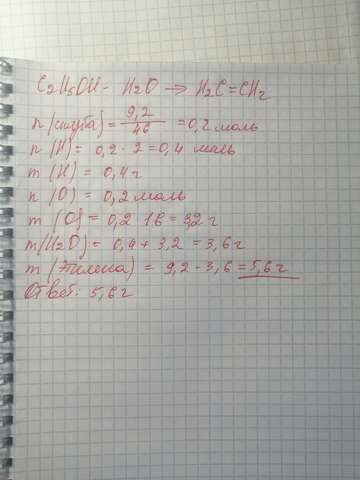 C2H5OH - H2O → H2C=CH2
n (спирта) = 9,2/46 = 0,2 моль
n (H) = 0,2 · 2 = 0,4 моль
m (H) = 0,4 г
n (O) = 0,2 моль
m (O) = 0,2 · 16 = 3,2 г
m (H2O) = 0,4 + 3,2 = 3,6 г
m (Этилена) = 9,2 - 3,6 = 5,6 г
Ответ: 5,6 г